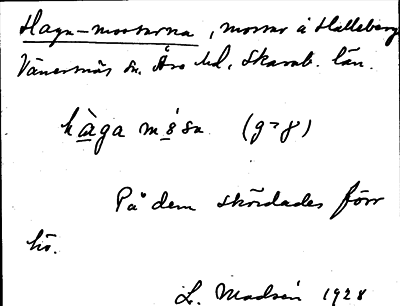 Haga-mossarna, mossar å Halleberg
Vänersnäs sn. Åse hd, Skarab. län.
hàga mósa (g=γ)
På dem skördades förr
hö.
L. Madsén 1928